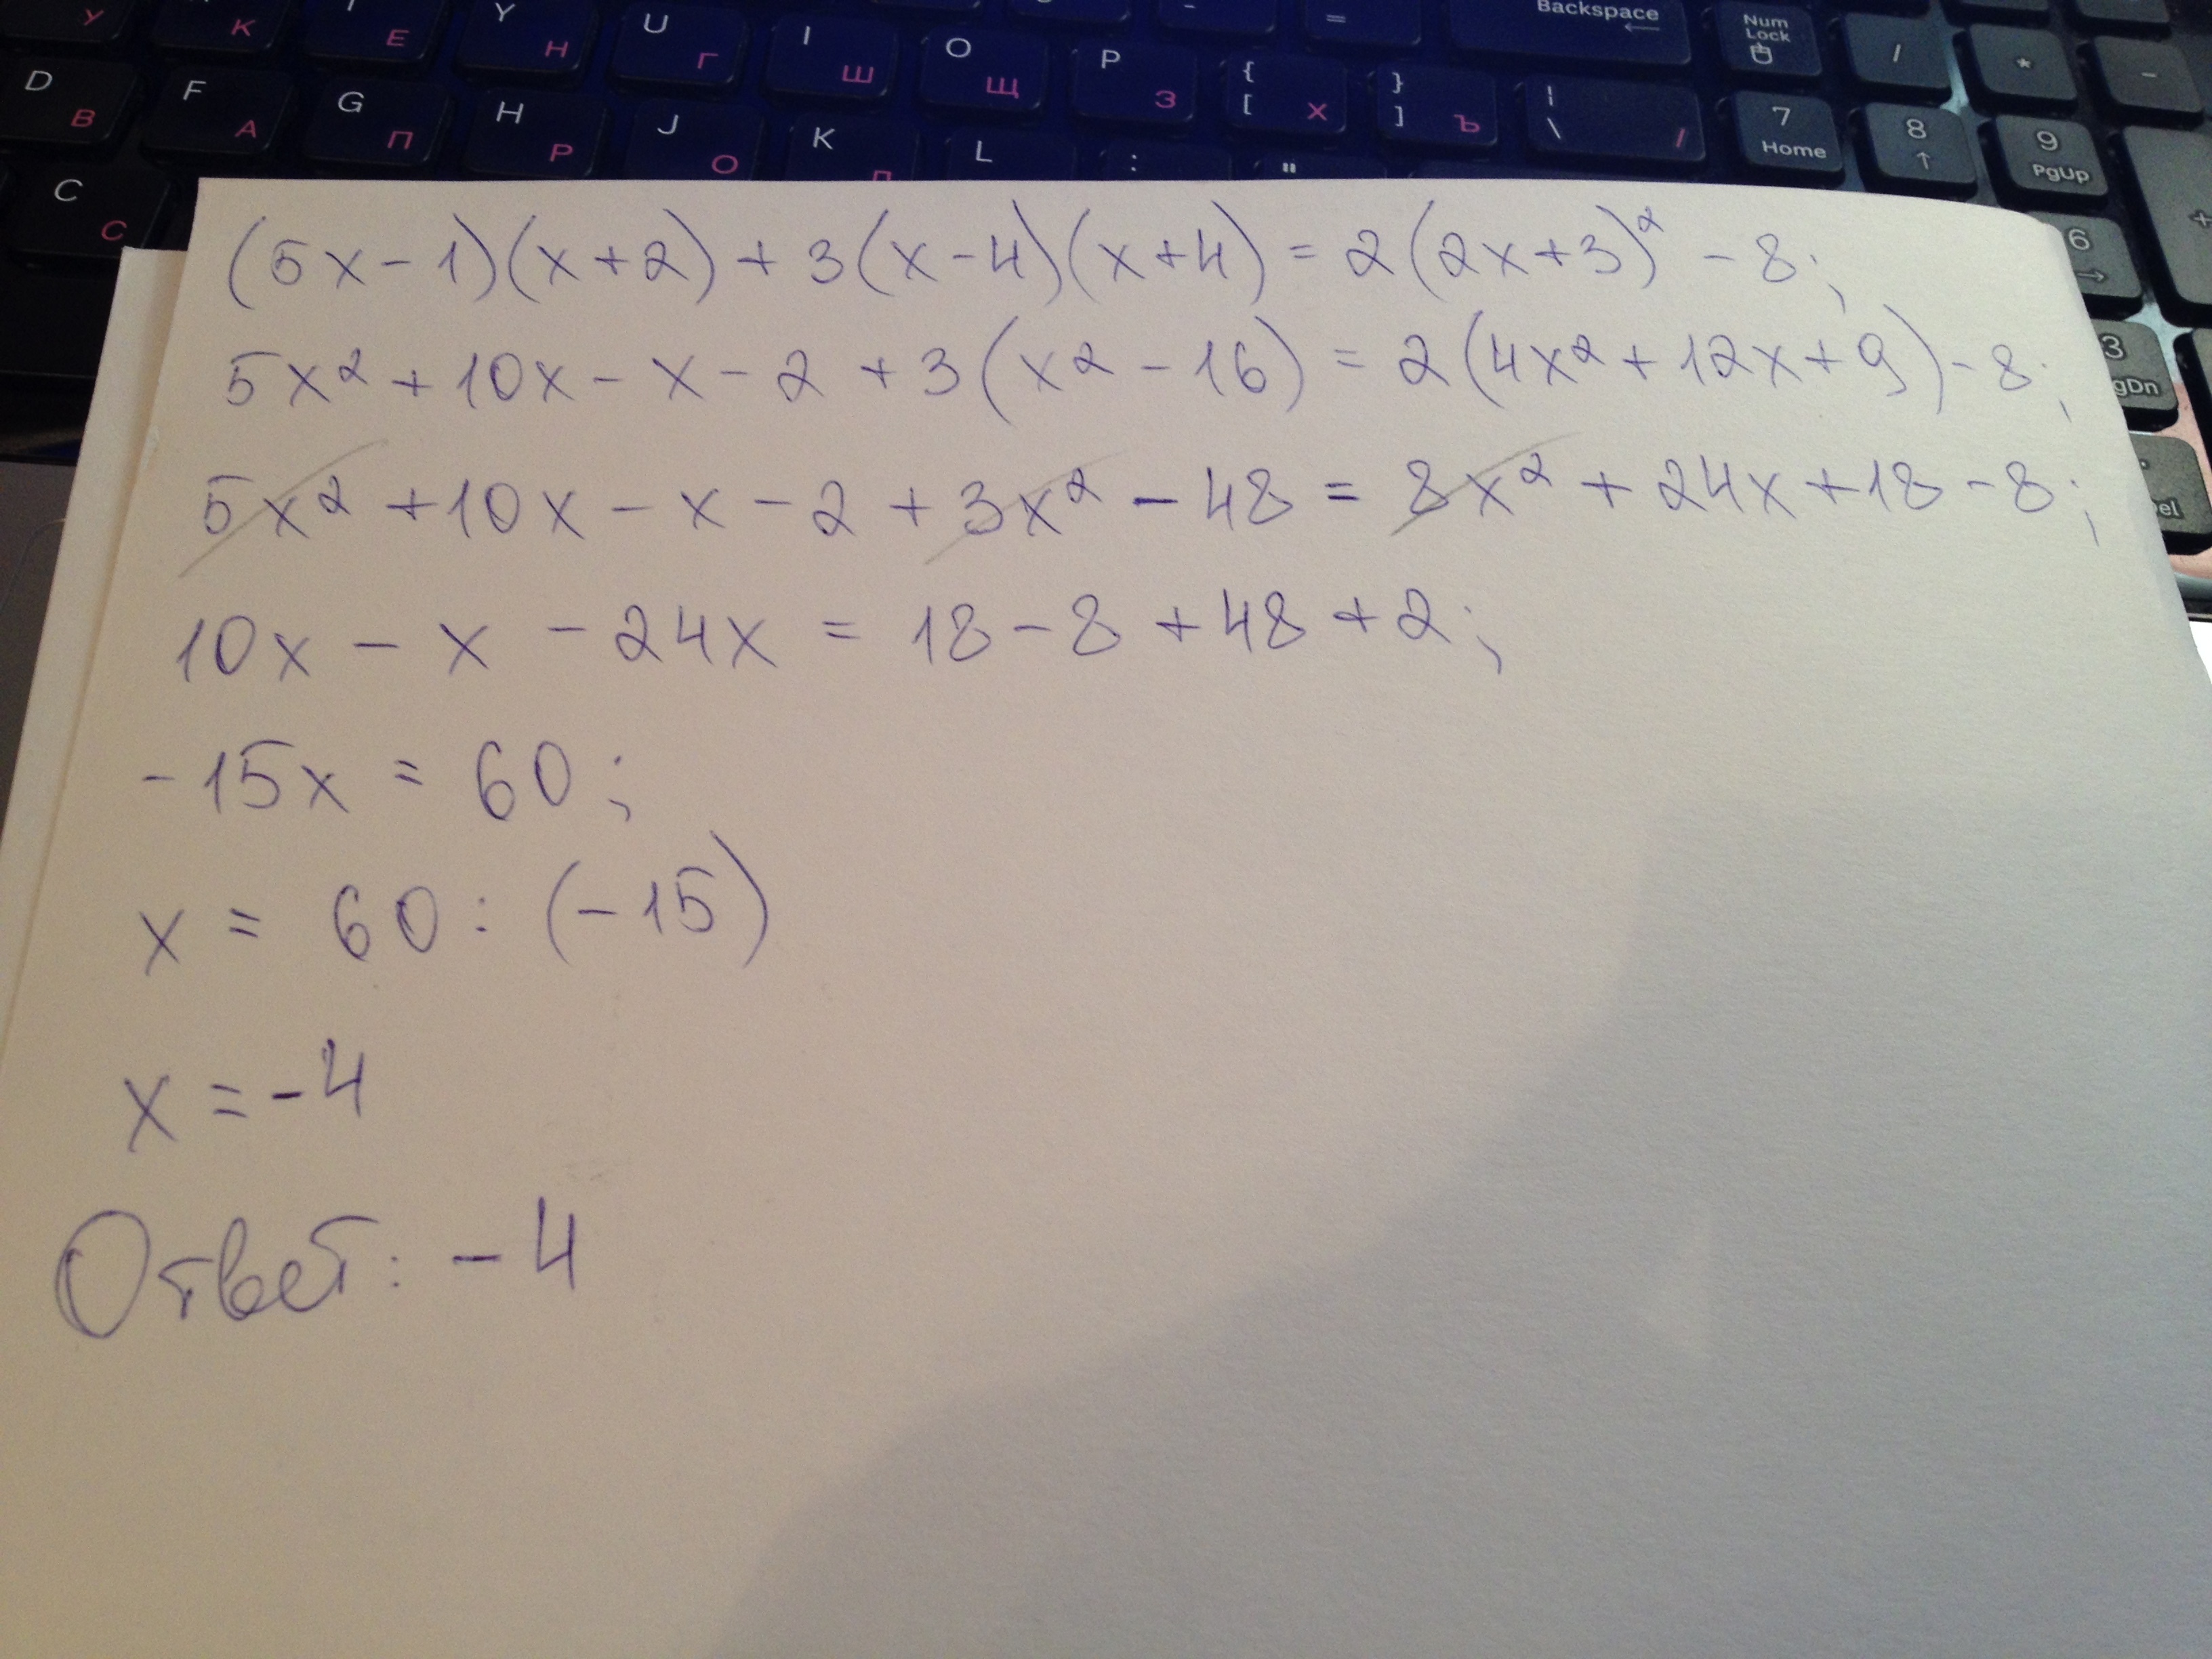 У К Е Y Н U Г I Ш O Щ P З { [ Х } ] Ъ | \ / Backspace Num Lock / * -
D В F А G П H Р J О K Л L : " 7 Home 8 ↑ 9 PgUp +
C С 6 →
3 gDn
el
(5x-1)(x+2)+3(x-4)(x+4)=2(2x+3)²-8;
5x²+10x-x-2+3(x²-16)=2(4x²+12x+9)-8;
5x²+10x-x-2+3x²-48=8x²+24x+18-8;
10x-x-24x=18-8+48+2;
-15x=60;
x=60:(-15)
x=-4
Ответ: -4